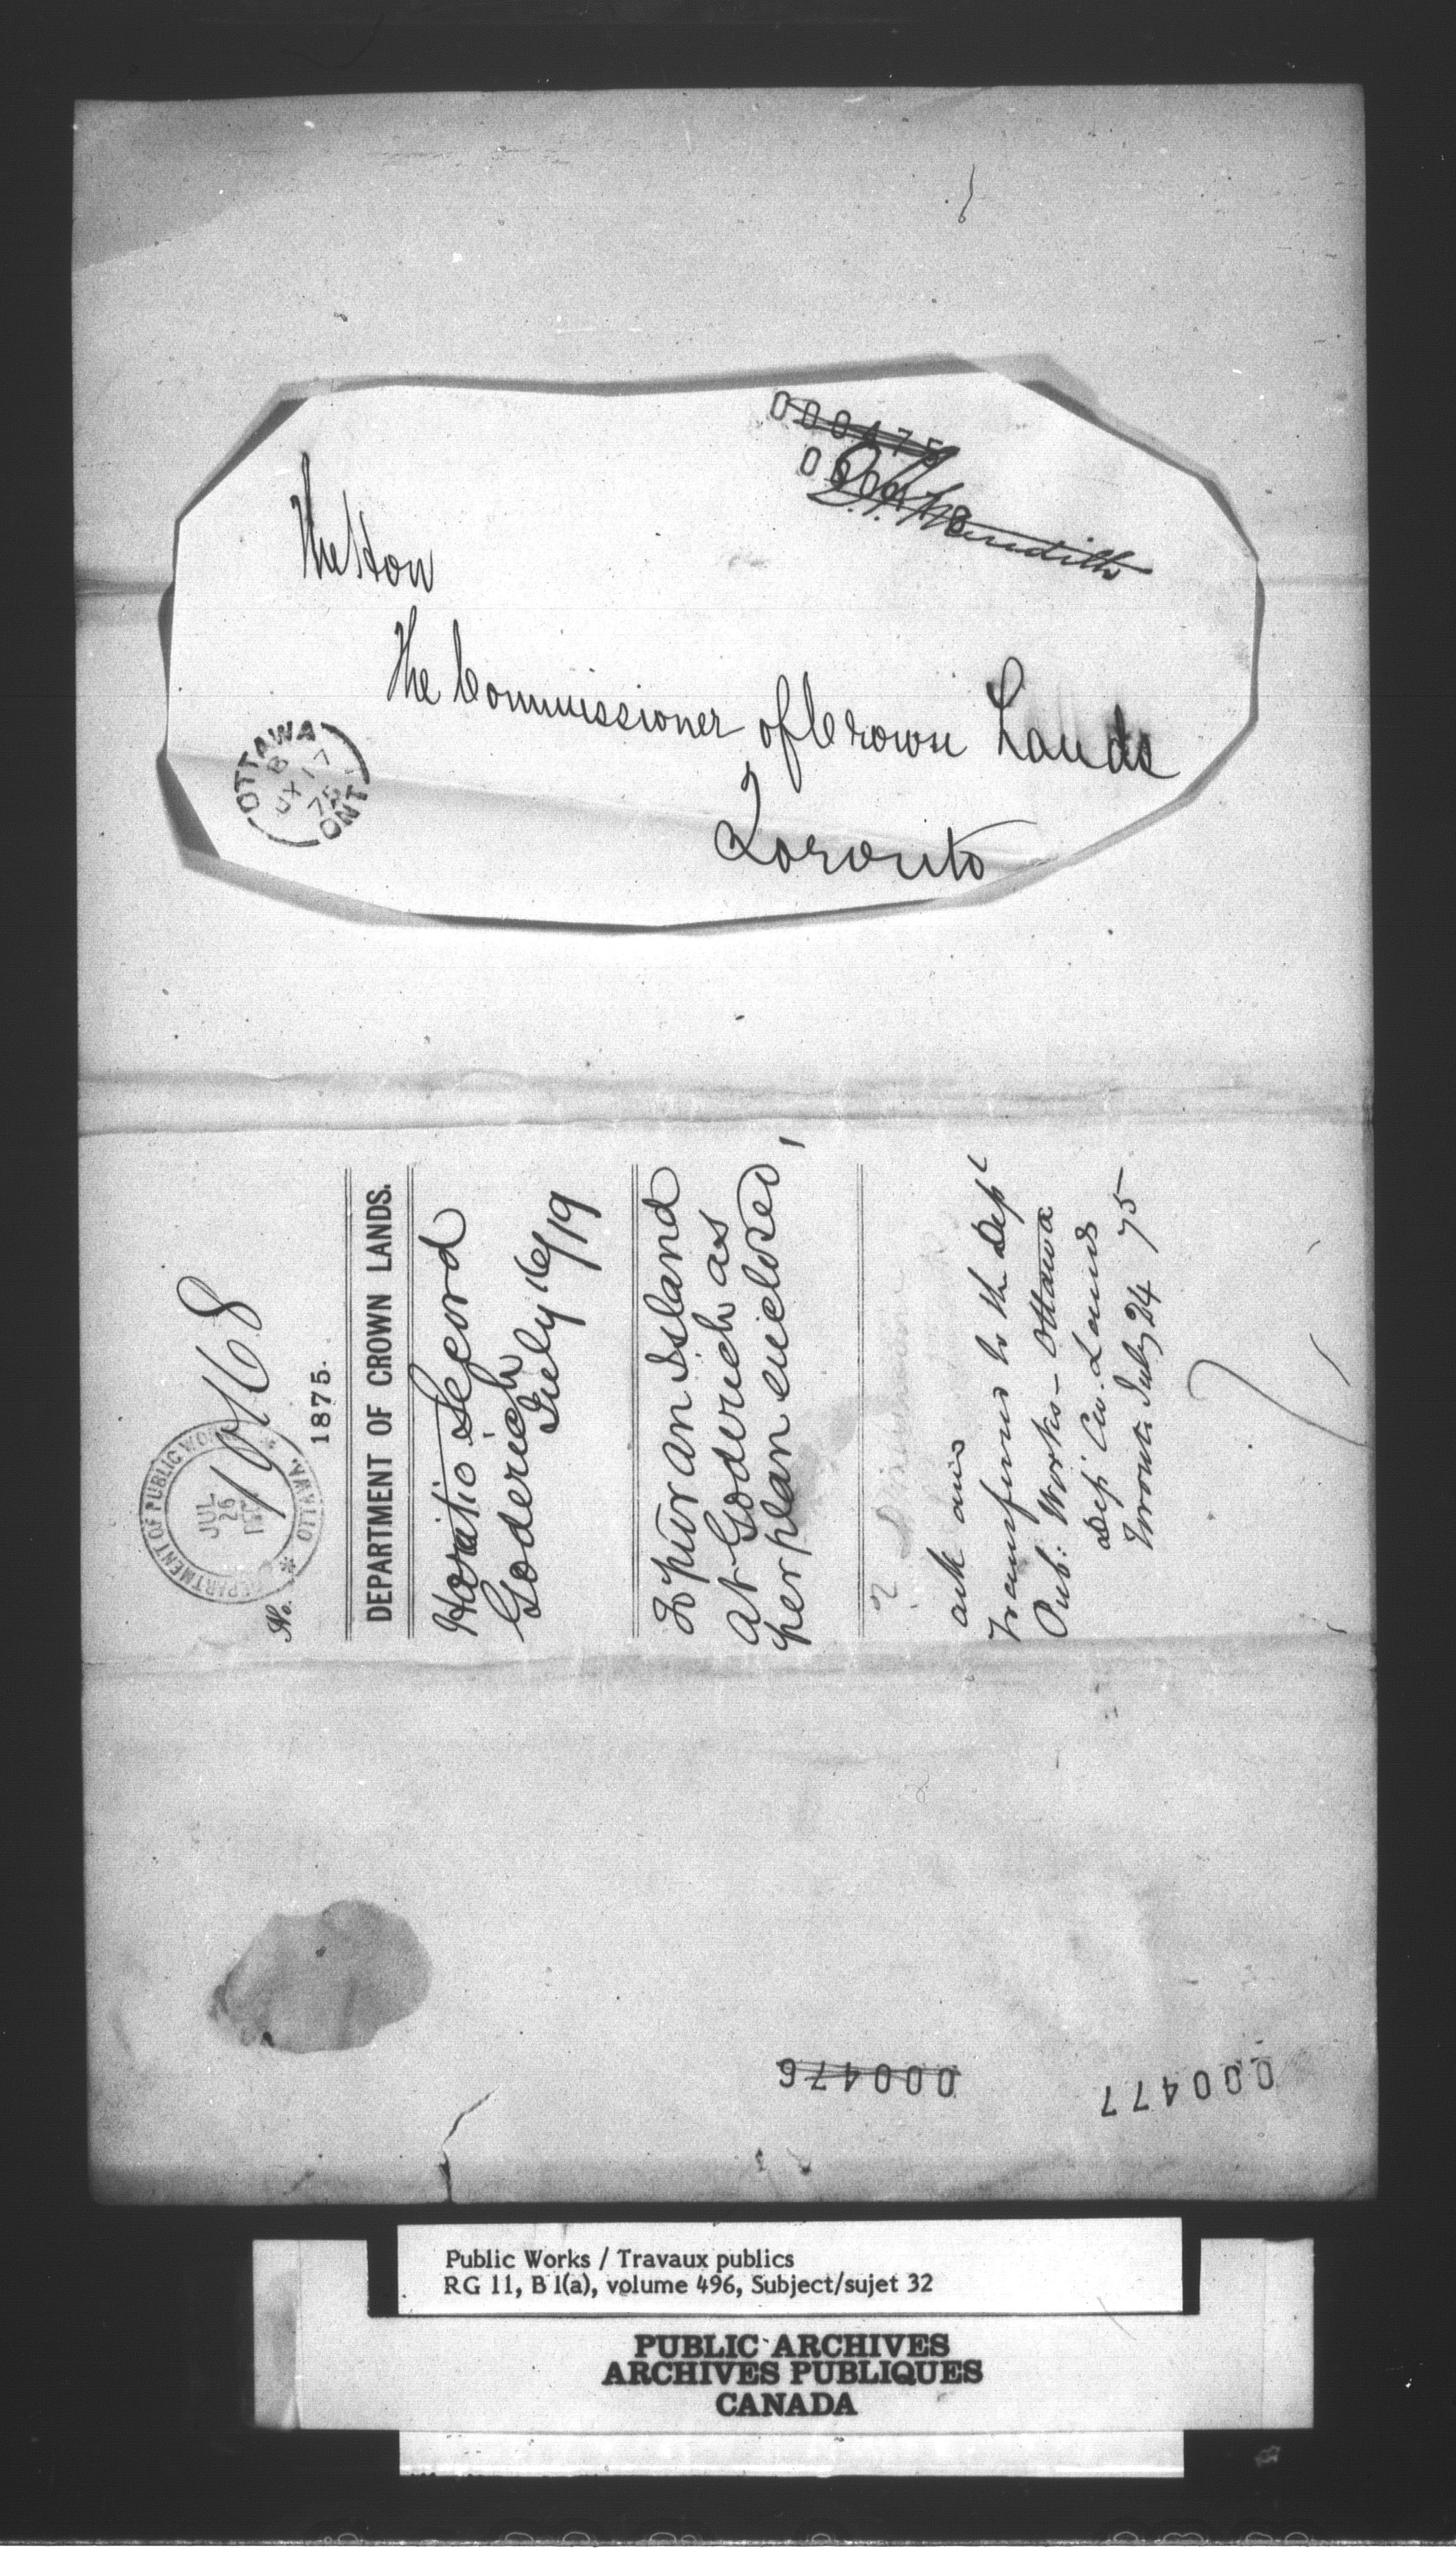 000475
000476
E. A. Meredith
The Hon
The Commissioner of Crown Lands
Toronto
OTTAWA
B
JY 17
75
ONT
DEPARTMENT OF PUBLIC WORKS
OTTAWA
JUL
26
No. 19168
1875.
DEPARTMENT OF CROWN LANDS.
Horatio Secord
Goderich
July 16/19
To pur an Island
at Goderich as
per plan enclosed,
ack and
transferred to the Dept
Pub: Works - Ottawa
Dep. Cr. Lands
Toronto July 24 75
000476
000477
Public Works / Travaux publics
RG 11, B 1(a), volume 496, Subject/sujet 32
PUBLIC ARCHIVES
ARCHIVES PUBLIQUES
CANADA